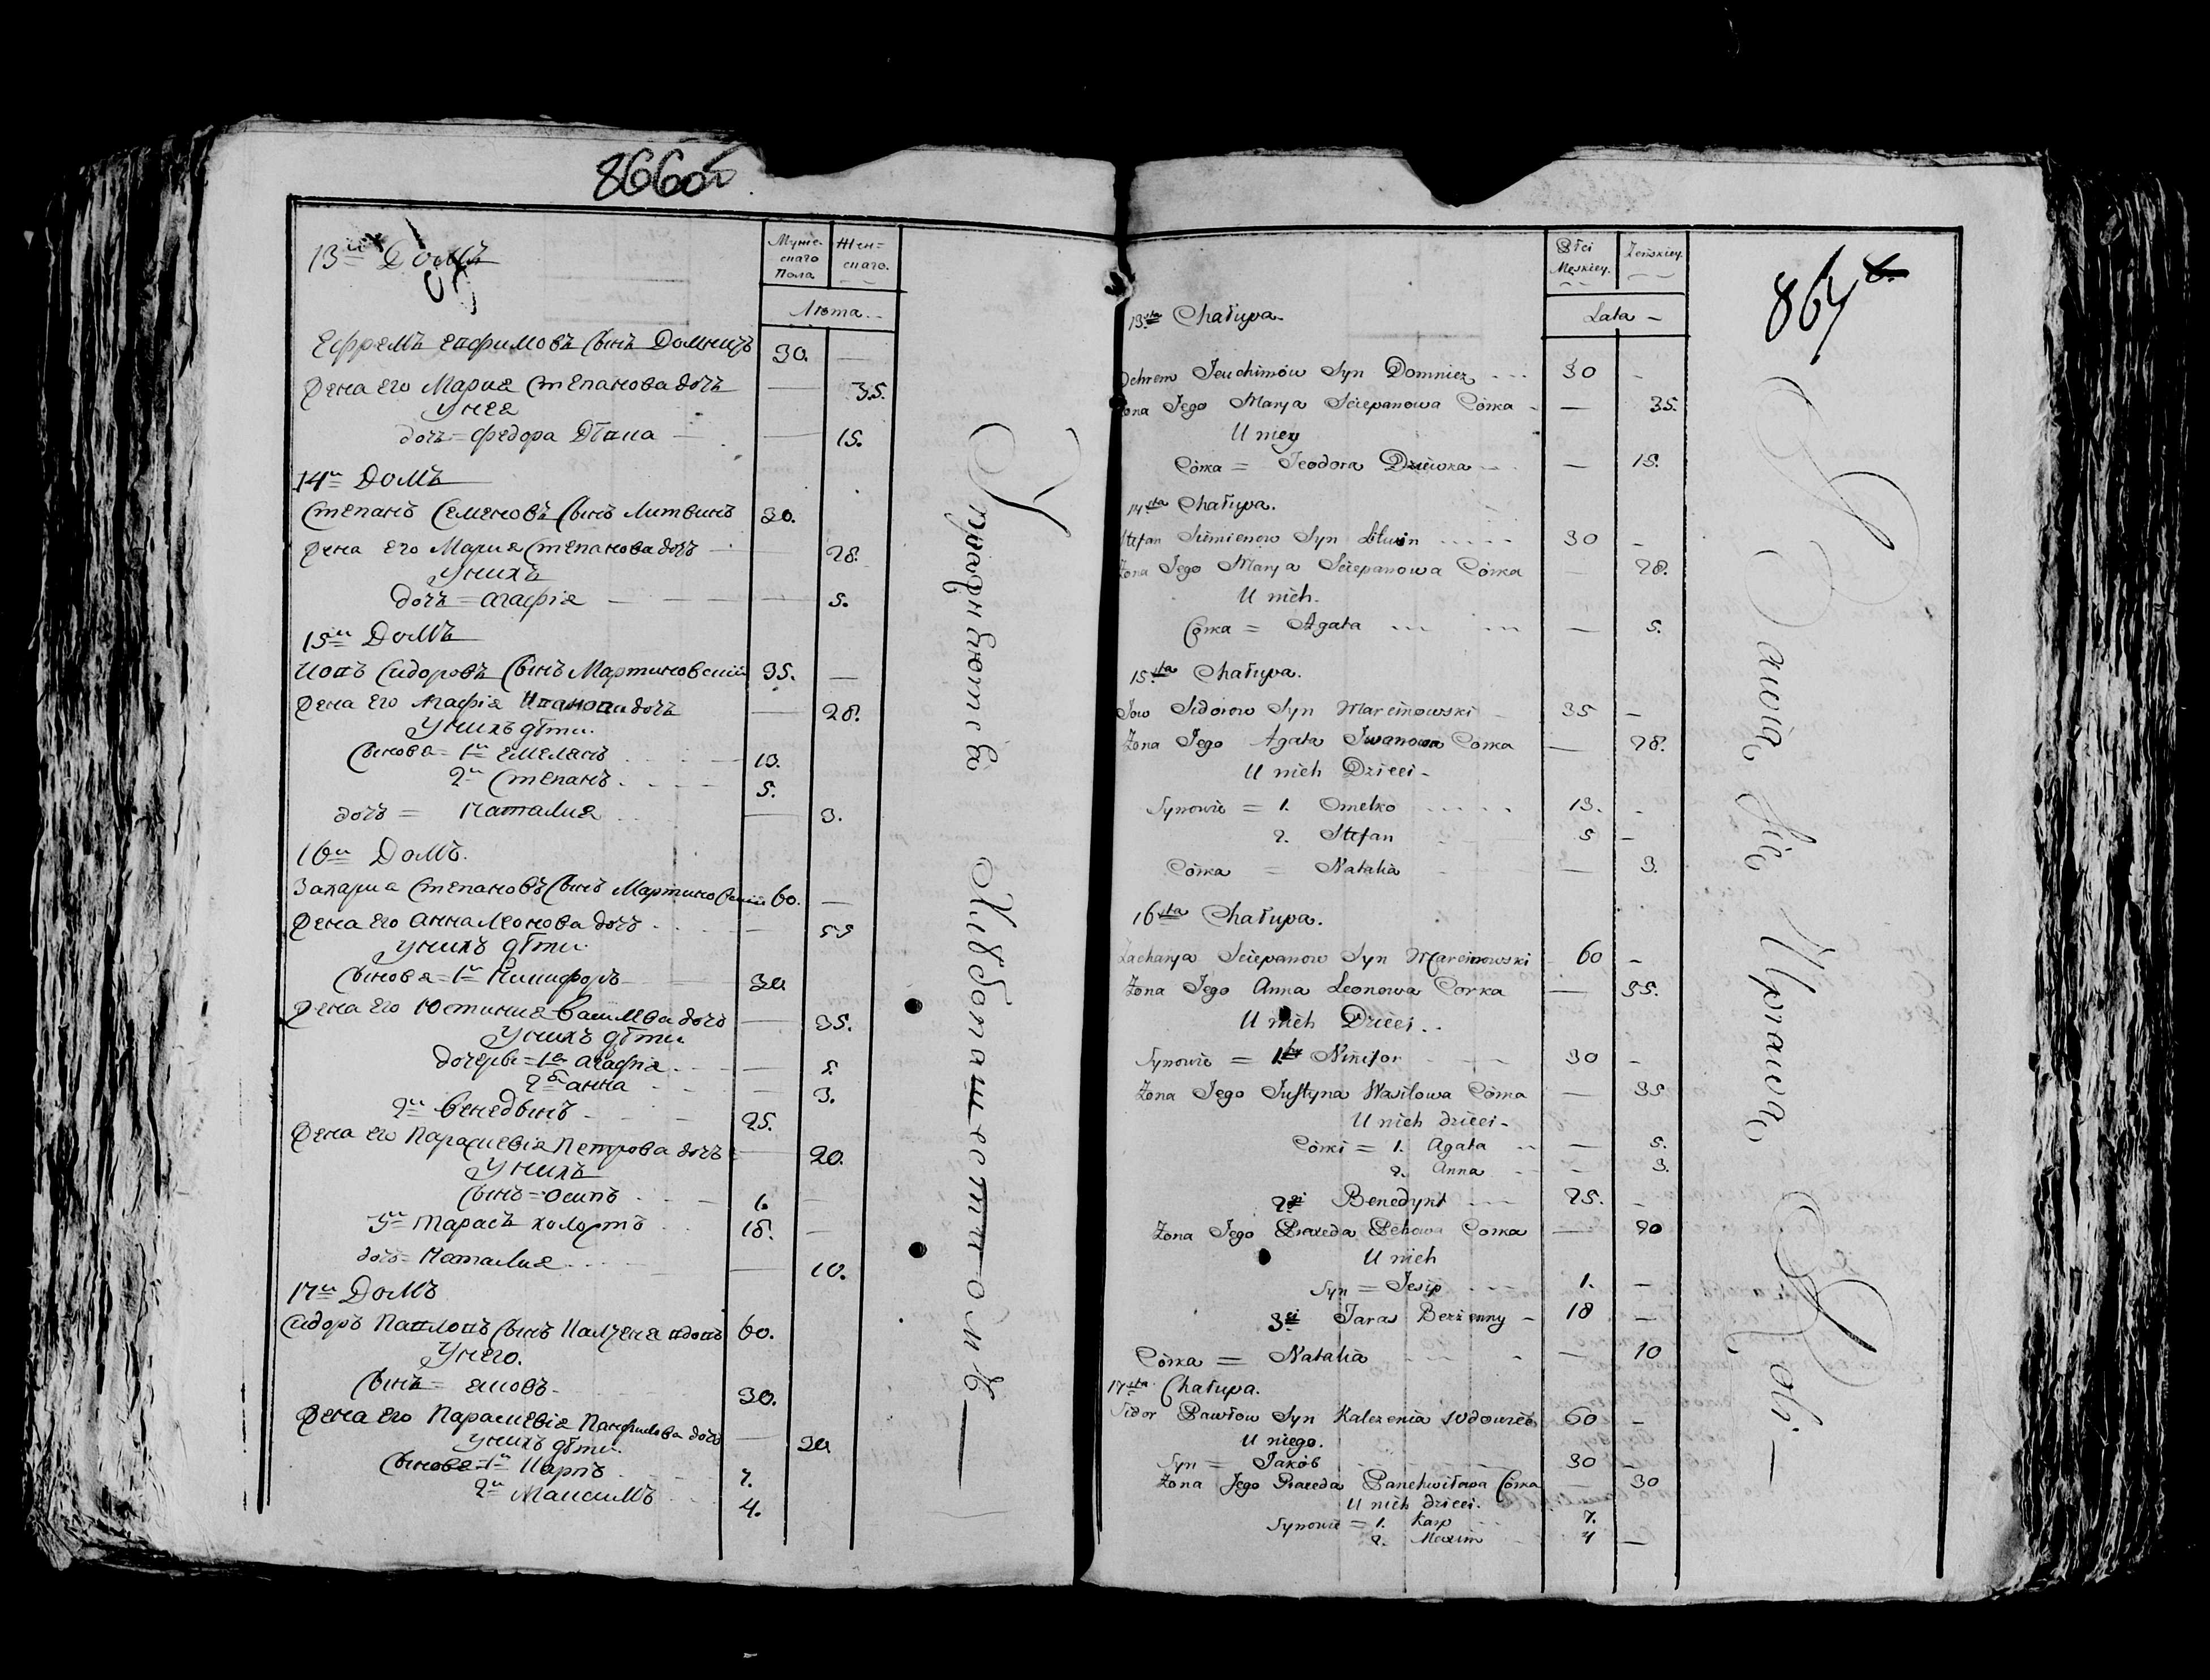 866об
13й Домъ
Муже-
скаго
Пола
Жен=
скаго.
Люта
Ефремъ Евфимовъ Сынъ Домницъ 30. —
Жена Его Мария Степанова дочь — 35.
У нея
дочь = Федора Дѣвка — 15.
14й Домъ
Степанъ Семеновъ Сынъ Литвинъ 30.
Жена Его Мария Степанова дочь — 28.
У нихъ
дочь = Агафiя — 5.
15й Домъ
Иовъ Сидоровъ Сынъ Мартиновский 35. —
Жена Его Агафiя Иванова дочь — 28.
У нихъ дѣти.
Сыновя = 1й Емелянъ 13.
2й Степанъ 5.
дочь = Наталия — 3.
16й Домъ.
Захария Степановъ Сынъ Мартиновский 60. —
Жена Его Анна Леонова дочь — 55
У нихъ дѣти.
Сыновя = 1й Никифоръ 30
Жена Его Юстиния Василева дочь — 35.
У нихъ дѣти
дочеры = 1я Агафiя — 5.
2я Анна — 3.
2й Бенедыкъ 25.
Жена Его Параскевiя Петрова дочь — 20.
У нихъ
Сынъ = Осипъ 1. —
3й Тарасъ холостъ 18. —
дочь = Наталия — 10.
17й Домъ
Сидоръ Павловъ Сынъ Калченя вдовъ 60.
У него.
Сынъ = Яковъ 30.
Жена Его Параскевiя Панфилова дочь — 30
У нихъ дѣти.
Сыновя = 1й Карпъ 7.
2й Максимъ 4.
Упражняются Хлѣбопашествомъ —
867
Płci
Męskiey.
Żeńskiey.
Lata —
13sta Chałupa.
Ochrem Jeuchimów Syn Domnicz 30 —
Żona Jego Marya Sciepanowa Córka — 35.
U niey
Córka = Teodora Dziewka — 15.
14sta Chałupa.
Stefan Simienow Syn Litwin 30 —
Żona Jego Marya Sciepanowa Córka — 28.
U nich.
Córka = Agata — 5.
15sta Chałupa.
Jow Sidorow Syn Marcinowski 35 —
Żona Jego Agata Iwanowa Córka — 28.
U nich Dzieci —
Synowie = 1. Omelko 13. —
2. Stefan 5 —
Córka = Natalia — 3.
16sta Chałupa.
Zacharya Sciepanow Syn Marcinowski 60 —
Żona Jego Anna Leonowa Corka — 55.
U nich Dzieci.
Synowie = 1szy Nikifor 30 —
Żona Jego Justyna Wasilowa Córka — 35
U nich dzieci —
Córki = 1. Agata — 5.
2. Anna — 3.
2gi Benedykt 25. —
Żona Jego Praxeda Petrowa Corka — 20
U nich
Syn = Jesip 1. —
3ci Taras Bezżenny 18 —
Córka = Natalia — 10
17sta Chałupa.
Sidor Pawłow Syn Kalczenia Wdowiec 60 —
U niego.
Syn = Jakób 30 —
Żona Jego Praxeda Panchwiłowa Córka — 30
U nich dzieci.
Synowie = 1. Karp 7.
2. Maxim 4 —
Bawią się Uprawą Roli —